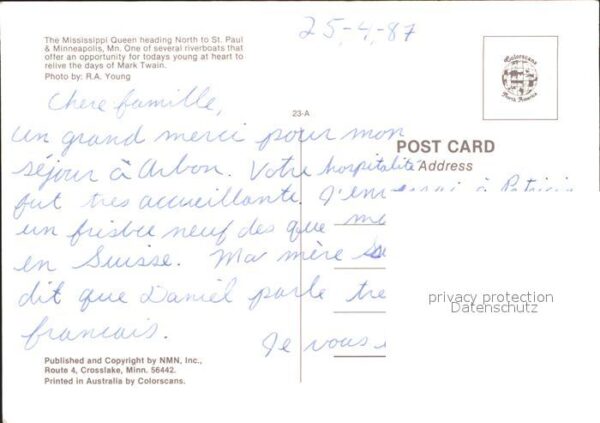 The Mississippi Queen heading North to St. Paul
& Minneapolis, Mn. One of several riverboats that
offer an opportunity for todays young at heart to
relive the days of Mark Twain.
Photo by: R.A. Young
25-4-87
Colorscans
North America
23-A
POST CARD
Address
Chere famille,
un grand merci pour mon
séjour à Arbon. Votre hospitalité
fut tres accueillante. J'enverrai à Patricia
un frisbee neuf des que me
en Suisse. Ma mère
dit que Daniel parle tre
francais.
Je vous
privacy protection
Datenschutz
Published and Copyright by NMN, Inc.,
Route 4, Crosslake, Minn. 56442.
Printed in Australia by Colorscans.